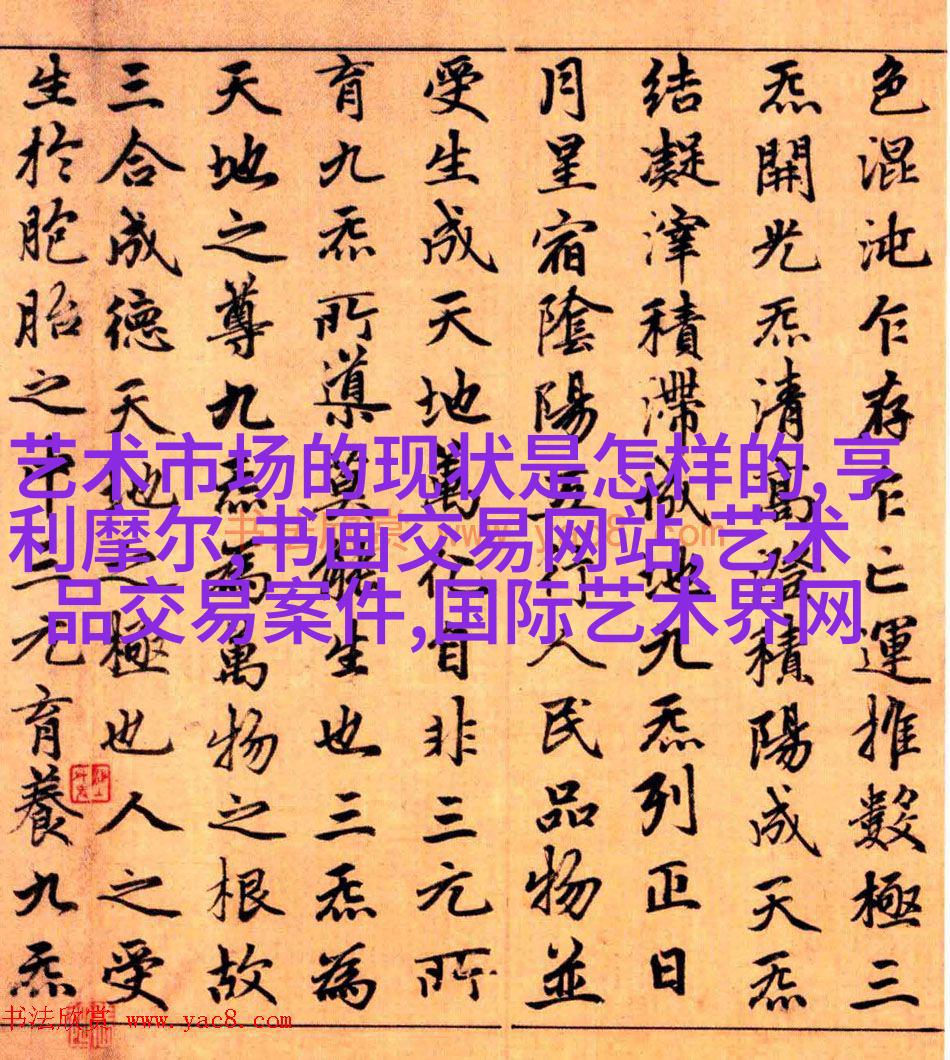 色混沌乍存乍亡運推數極三
炁開光炁清高澄積陽成天炁
結凝滓積滯成地九炁列正日
月星宿陰陽五行人民品物並
受生成天地萬化自非三元所
育九炁所導莫能生也三炁為
天地之尊九炁為萬物之根故
三合成德天地之極也人之受
生於胞胎之中三元育養九炁
艺术市场的现状是怎样的,亨
利摩尔,书画交易网站,艺术
品交易案件,国际艺术界网
书法欣赏 www.yac8.com
书法欣赏 www.yac8.com